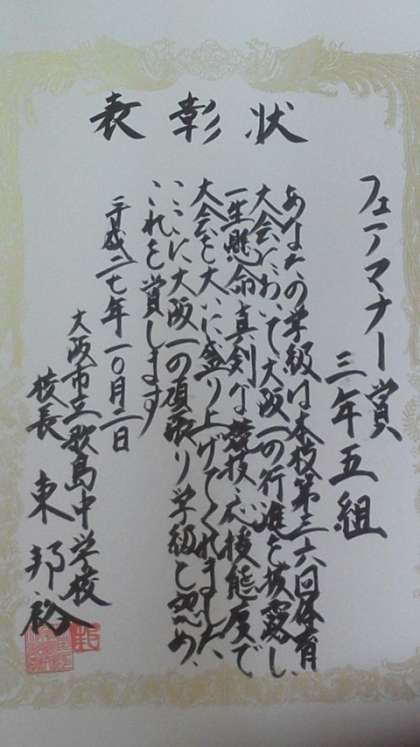 表彰状
フェアマナー賞
三年五組
あなたの学級は本校第三六回体育
大会において大阪一の行進を披露し
一生懸命真剣な競技・応援態度で
大会を大いに盛り上げてくれました
ここに大阪一の頑張り学級と認め
これを賞します
平成二七年一〇月二日
大阪市立歌島中学校
校長 東邦裕